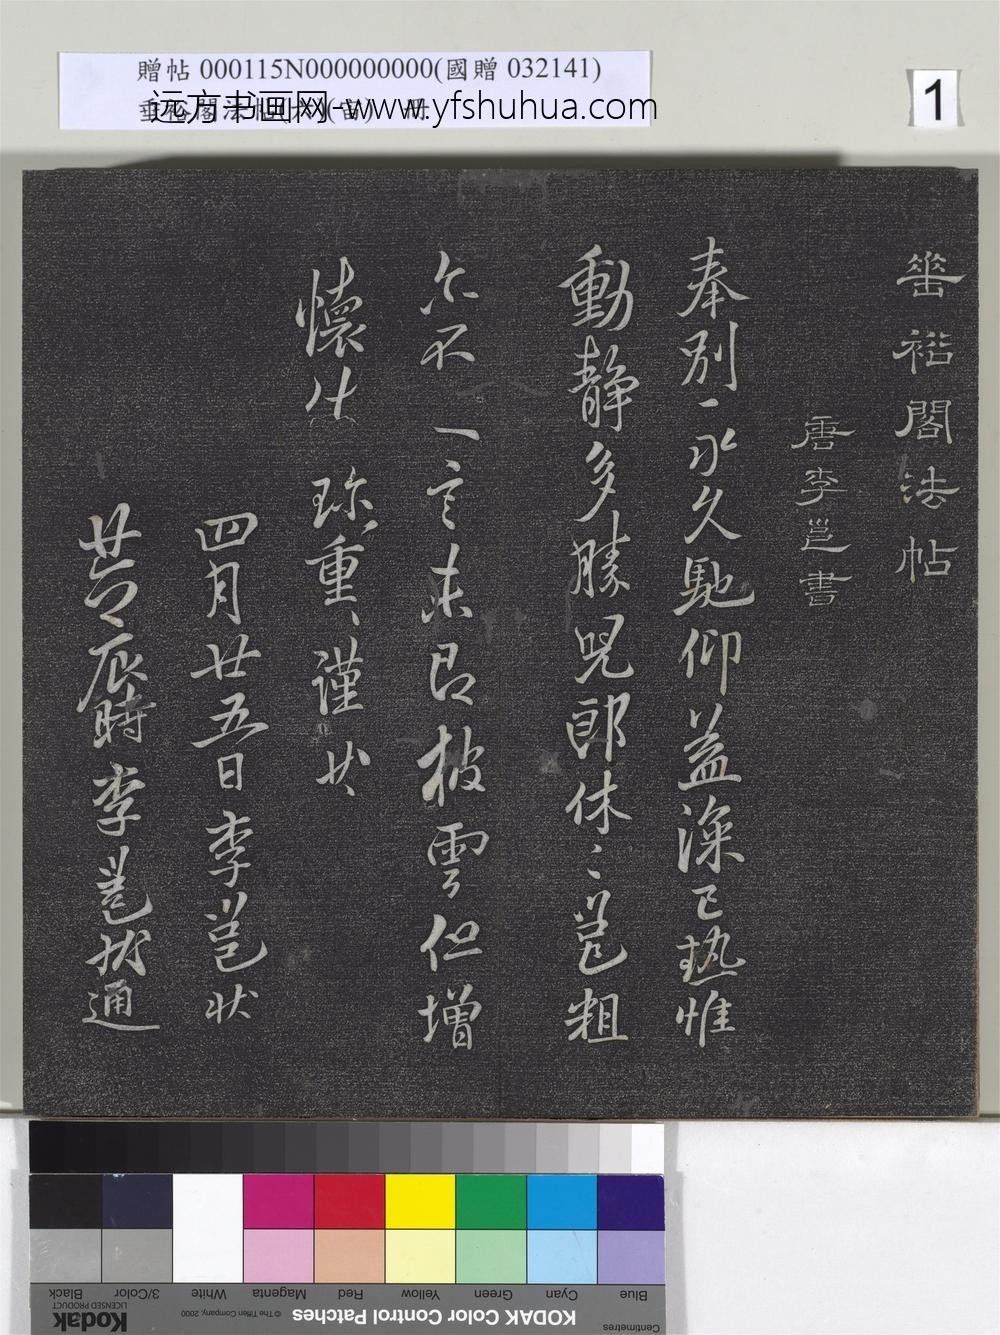 贈帖 000115N000000000(國贈 032141)
垂裕閣法帖
远方书画网-www.yfshuhua.com
1
垂裕閣法帖
唐李邕書
奉別永久馳仰益深已熱惟
動靜多勝兕郎休邕粗
尒不一言未即披雲但增
懷仕 珍重謹廿
四月廿五日李邕狀
辰時李邕狀通
Blue
Cyan
Green
Yellow
Red
Magenta
White
3/Color
Black
Centimetres
KODAK Color Control Patches
© The Tiffen Company, 2000
Kodak
LICENSED PRODUCT